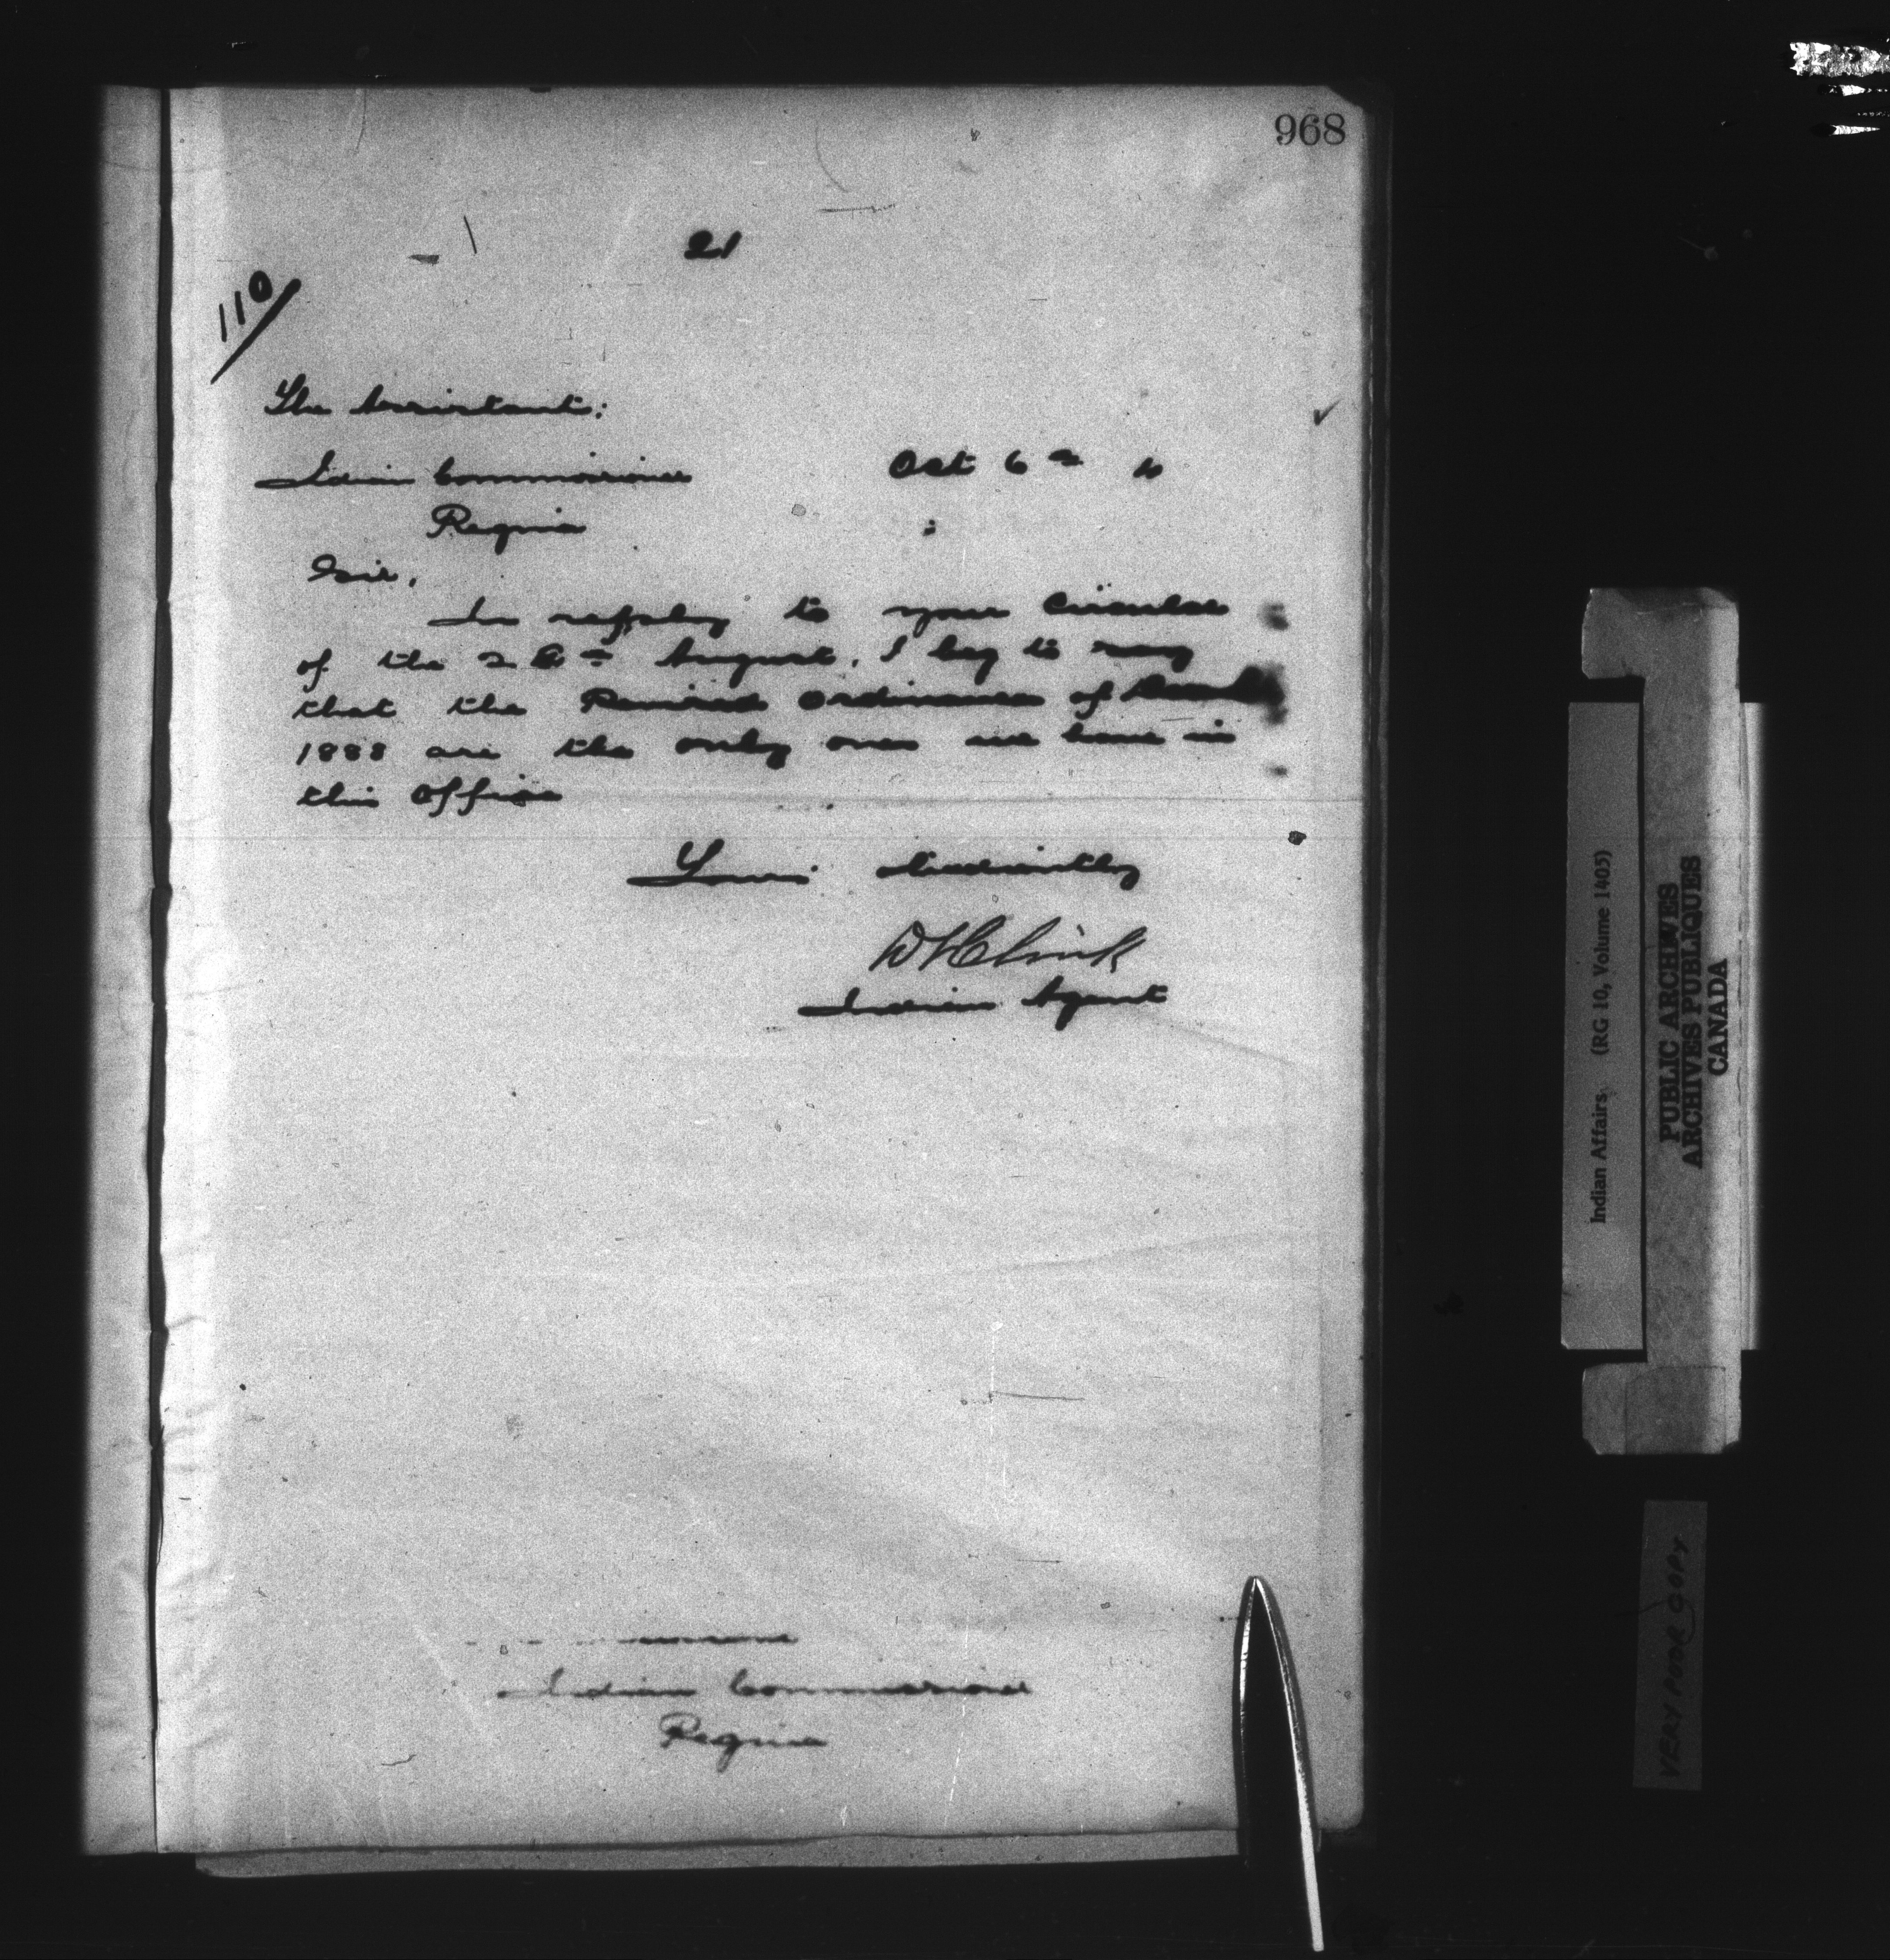 968
21
110
The Assistant:
Indian Commissioner
Oct 6th
Regina
Sir,
In reply to your Circular
of the 26th August, I beg to say
that the Revised Ordinances of
1888 are the only ones we have in
this Office
Your obediently
Indian Agent
Indian Commissioner
Regina
Indian Affairs. (RG 10, Volume 1405)
PUBLIC ARCHIVES
ARCHIVES PUBLIQUES
CANADA
VERY POOR COPY